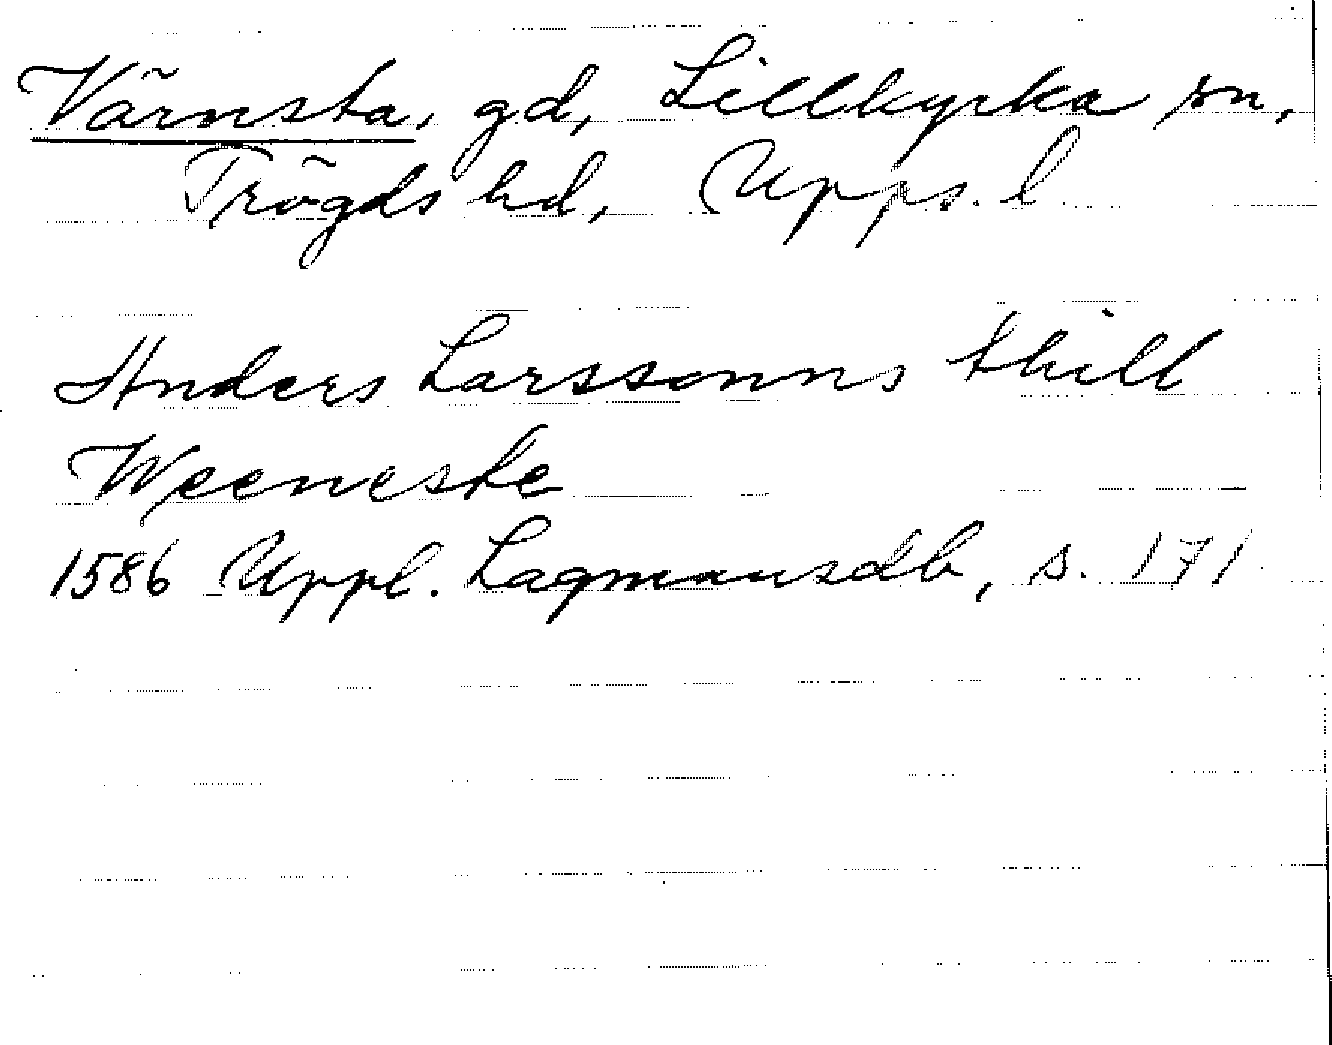 Värnsta, gd, Lillkyrka sn,
Trögds hd, Upps. l
Anders Larssonns thill
Weeneste
1586 Uppl. Lagmansdb, s. 171